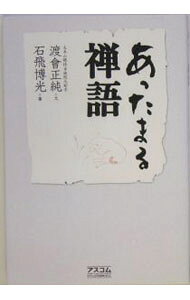 あったまる
禅語
渡會正純・文
石飛博光・書
アスコム